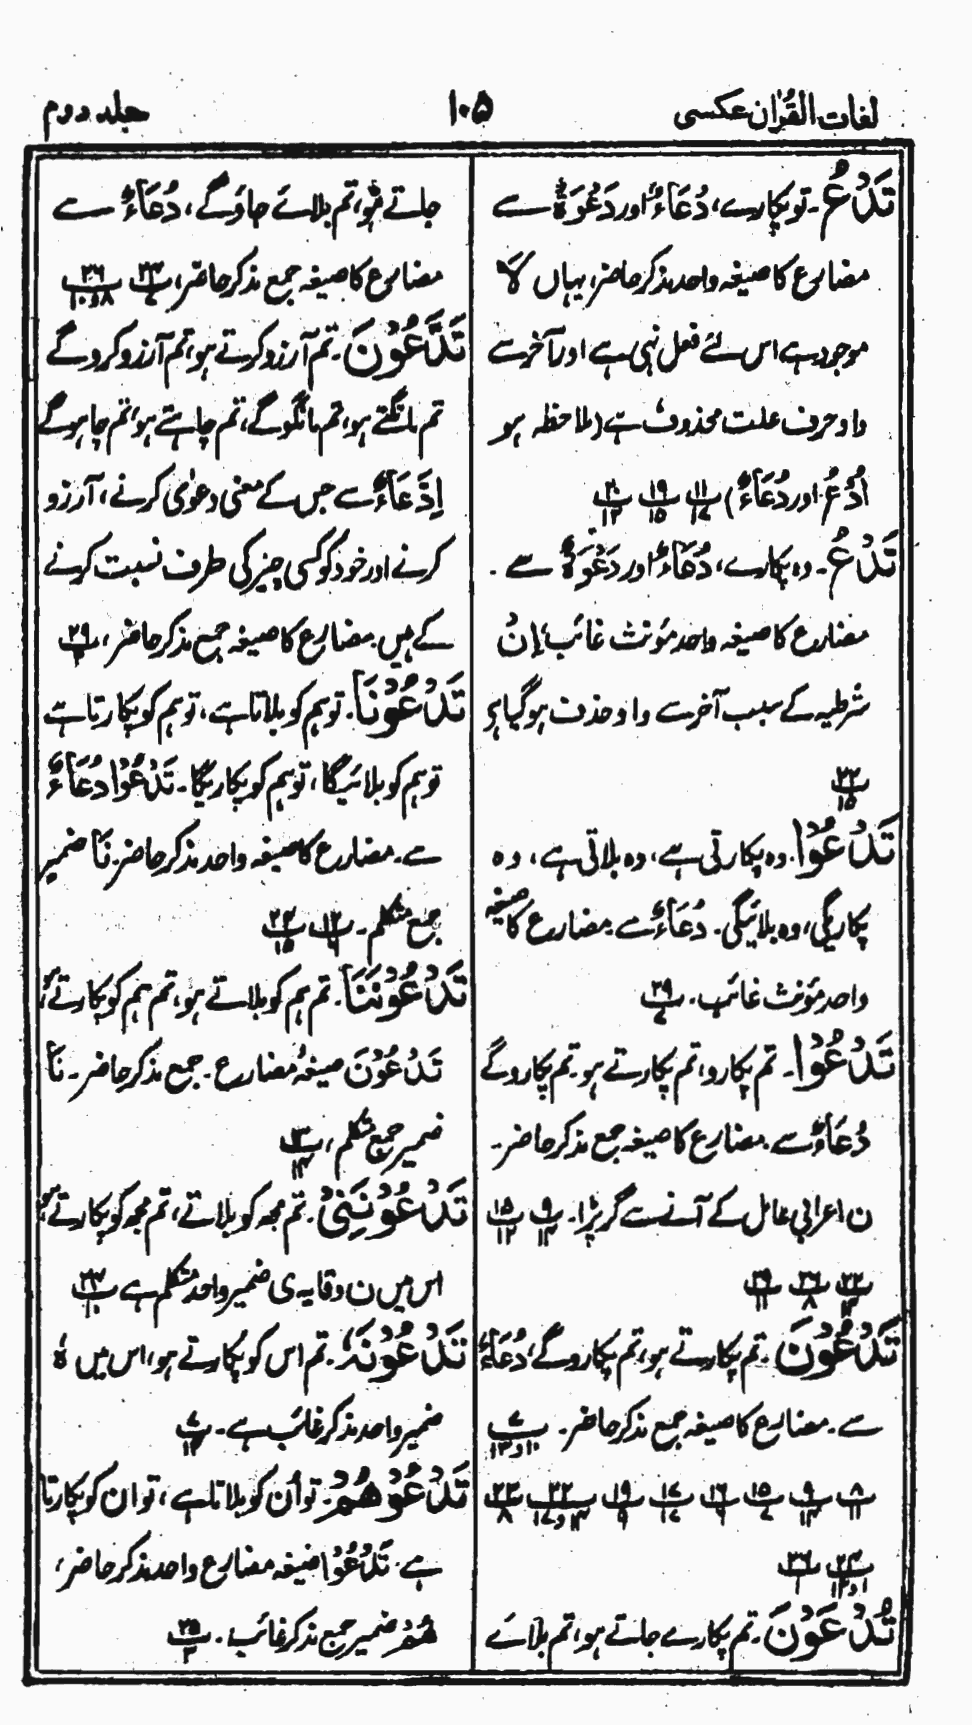 لغات القرآن عکسی
۱۰۵
جلد دوم
تَدْعُ۔ تو پکارے، دُعَاءٌ اور دَعْوَةٌ سے
مضارع کا صیغہ واحد مذکر حاضر، یہاں لَا
موجود ہے اس لئے فعل نہی ہے اور آخر سے
واو حرف علت محذوف ہے (ملاحظہ ہو
اُدْعُ اور دُعَاءٌ) ۱۱/۱۷ ۱۹/۱۵ ۲۰/۱۲
تَدْعُ۔ وہ پکارے، دُعَاءٌ اور دَعْوَةٌ سے
مضارع کا صیغہ واحد مؤنث غائب، اِنْ
شرطیہ کے سبب آخر سے واو حذف ہوگیا ہے
۲۲/۱۵
تَدْعُوْا۔ وہ پکارتی ہے، وہ بلاتی ہے، وہ
پکاریگی، وہ بلائیگی۔ دُعَاءٌ سے مضارع کا صیغہ
واحد مؤنث غائب۔ ۲۹/۷
تَدْعُوْا۔ تم پکارو، تم پکارتے ہو۔ تم پکاروگے
دُعَاءٌ سے۔ مضارع کا صیغہ جمع مذکر حاضر۔
ن اعرابی عامل کے آنے سے گر پڑا۔ ۹/۱۴ ۱۵/۱۲
۲۲/۱۴ ۲۶/۸ ۲۹/۱۱
تَدْعُوْنَ۔ تم پکارتے ہو، تم پکاروگے، دُعَاءٌ
سے۔ مضارع کا صیغہ جمع مذکر حاضر۔ ۷/۱۰و۱۳
۸/۱۱ ۹/۱۴ ۱۵/۷ ۱۶/۶ ۱۷/۱۷ ۱۹/۵ ۲۲/۱۴و۱۷ ۲۳/۸
۲۴/۱و۱۲ ۲۶/۱
تُدْعَوْنَ۔ تم پکارے جاتے ہو، تم بلائے
جاتے ہو، تم بلائے جاؤگے، دُعَاءٌ سے
مضارع کا صیغہ جمع مذکر حاضر، ۲۴/۷ ۲۶/۸و۱۰
تَدَّعُوْنَ۔ تم آرزو کرتے ہو، تم آرزو کروگے
تم مانگتے ہو، تم مانگوگے، تم چاہتے ہو، تم چاہوگے
اِدِّعَاءٌ سے جس کے معنی دعوٰی کرنے، آرزو
کرنے اور خود کو کسی چیز کی طرف نسبت کرنے
کے ہیں۔ مضارع کا صیغہ جمع مذکر حاضر، ۲۹/۲
تَدْعُوْنَا۔ تو ہم کو بلاتا ہے، تو ہم کو پکارتا ہے
تو ہم کو بلائیگا، تو ہم کو پکاریگا۔ تَدْعُوْا دُعَاءٌ
سے۔ مضارع کا صیغہ واحد مذکر حاضر۔ نَا ضمیر
جمع متکلم۔ ۱۲/۶ ۲۴/۱۵
تَدْعُوْنَنَا۔ تم ہم کو بلاتے ہو، تم ہم کو پکارتے ہو،
تَدْعُوْنَ صیغۂ مضارع۔ جمع مذکر حاضر۔ نَا
ضمیر جمع متکلم، ۱۳/۱۴
تَدْعُوْنَنِیْ۔ تم مجھ کو بلاتے، تم مجھ کو پکارتے ہو،
اس میں ن وقایہ ی ضمیر واحد متکلم ہے ۲۴/۱۰
تَدْعُوْنَهٗ۔ تم اس کو پکارتے ہو، اس میں هٗ
ضمیر واحد مذکر غائب ہے۔ ۷/۱۴
تَدْعُوْهُمْ۔ تو اُن کو بلاتا ہے، تو ان کو پکارتا
ہے۔ تَدْعُوْا صیغہ مضارع واحد مذکر حاضر،
هُمْ ضمیر جمع مذکر غائب۔ ۲۵/۳